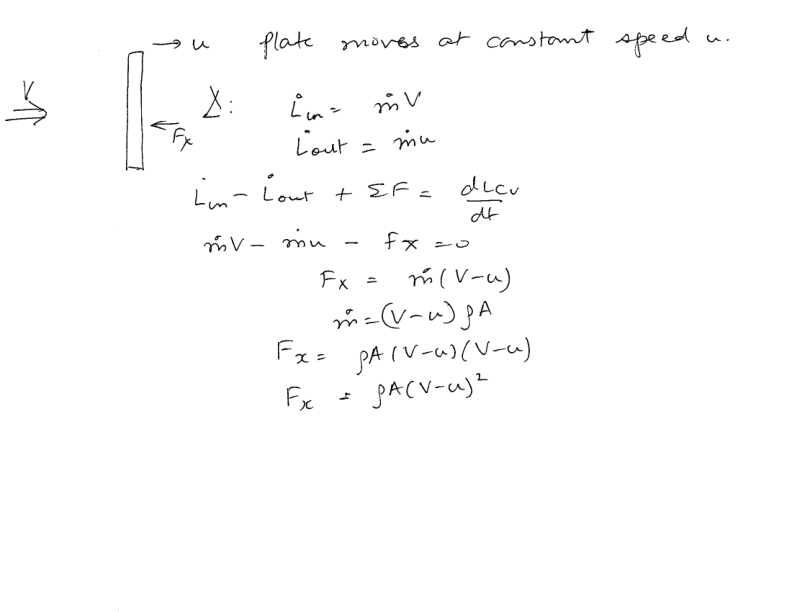 → u plate moves at constant speed u.
V
⇒
← Fx
X: L̇in = ṁV
L̇out = ṁu
L̇in - L̇out + ΣF = dLcv/dt
ṁV - ṁu - Fx = 0
Fx = ṁ(V-u)
ṁ = (V-u)ρA
Fx = ρA(V-u)(V-u)
Fx = ρA(V-u)²